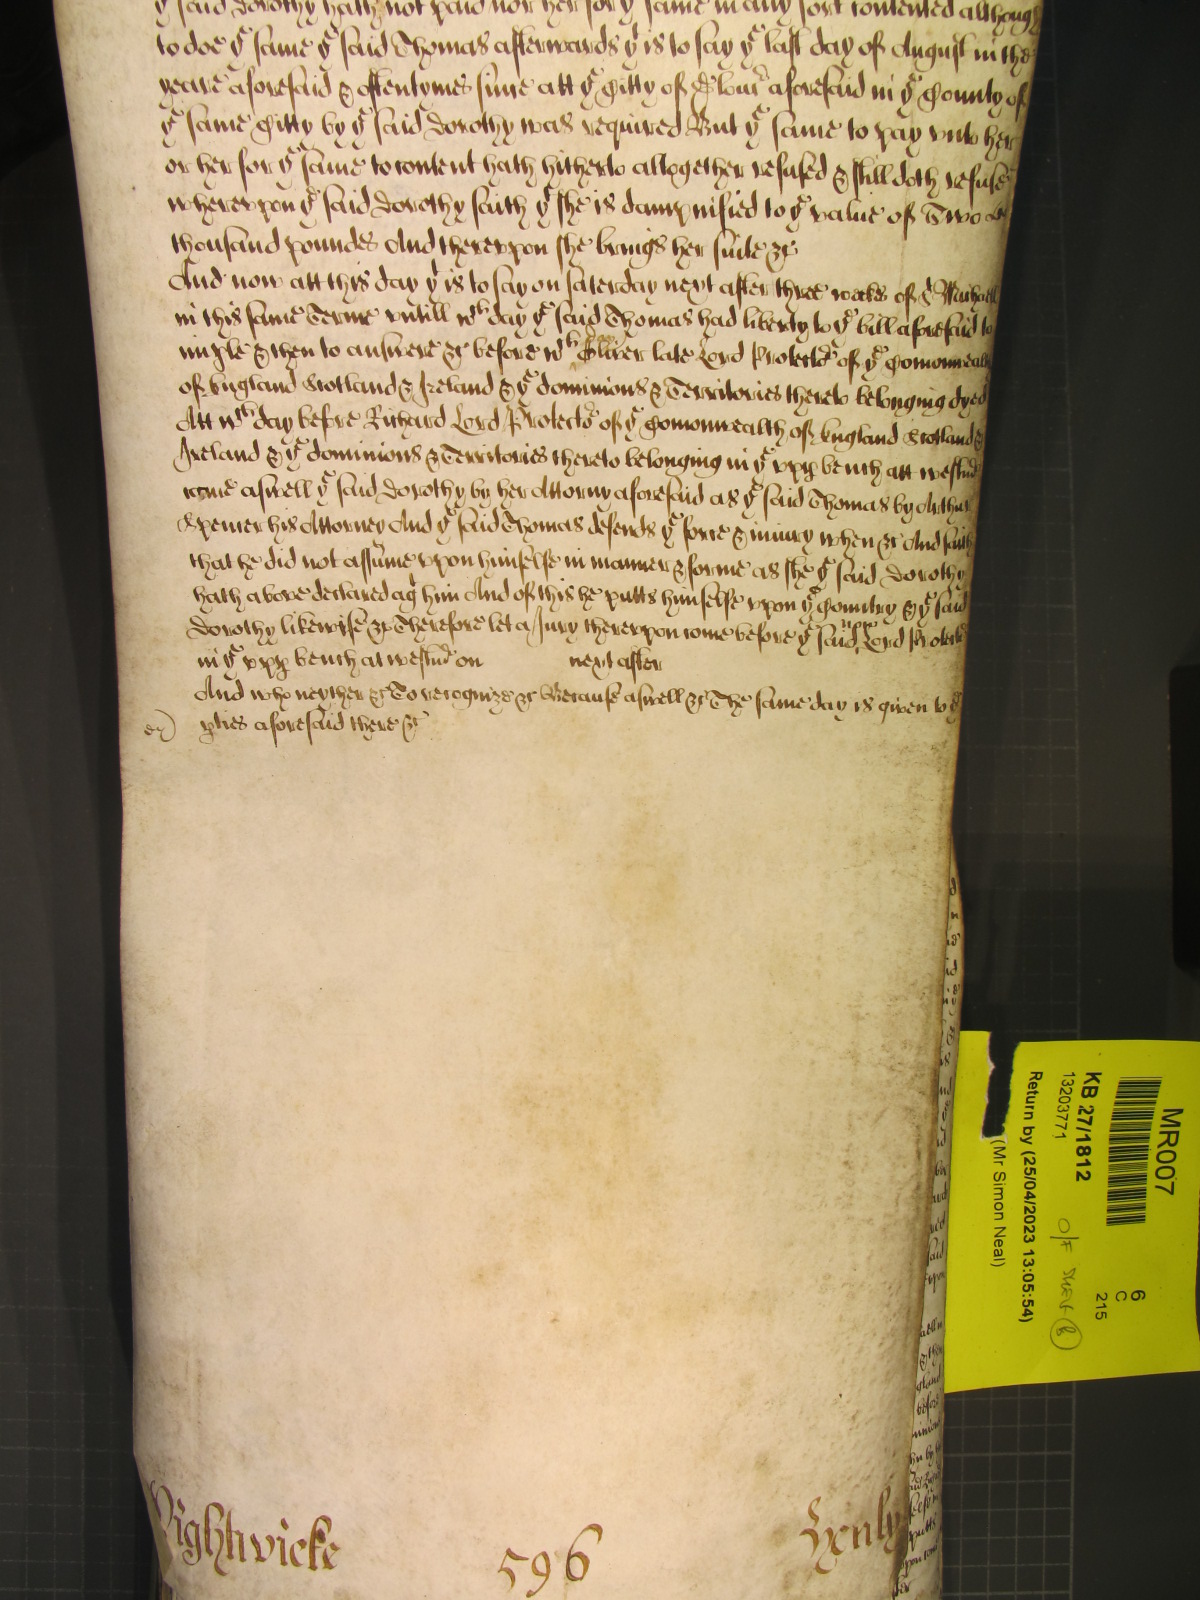 yͤ said Dorothy hath not paid nor her for yͤ same in any sort contented although
to doe yͤ same yͤ said Thomas afterwards yͭ is to say yͤ last day of August in the
yeare aforesaid & oftentymes since att yͤ Citty of aforesaid in yͤ County of
yͤ same Citty by yͤ said Dorothy was required But yͤ same to pay vnto her
or her for yͤ same to content hath hitherto alltogether refused & still doth refuse
wherevpon yͤ said Dorothy saith yͭ she is dampnified to yͤ value of Two
thousand poundes And therevpon she brings her suite &c
And now att this day yͭ is to say on Saterday next after three weekes of Sͭ Michaell
in this same Terme vntill wͨʰ day yͤ said Thomas had liberty to yͤ bill aforesaid to
imple & then to answere &c before wͨʰ day Oliver late Lord Protectoʳ of yͤ Comonwealth
of England Scotland & Ireland & yͤ dominions & Territories thereto belonging dyed
Att wͨʰ day before Richard Lord Protectoʳ of yͤ Comonwealth of England Scotland &
Ireland & yͤ dominions & Territories thereto belonging in yͤ vpp bench att Westmͬ
came aswell yͤ said Dorothy by her Attorny aforesaid as yͤ said Thomas by Arthur
Spencer his Attorney And yͤ said Thomas defends yͤ force & iniury when &c And saith
that he did not assume vpon himselfe in manner & forme as she yͤ said Dorothy
hath above declared agͭ him And of this he putts himselfe vpon yͤ Country & yͤ said
Dorothy likewise &c Therefore let a Jury therevpon come before yͤ said Lord Protectoʳ
in yͤ vpp bench at Westmͬ on next after
And who neyther &c To recognize &c Because aswell &c The same day is given to yͤ
pties aforesaid there &c
Wightwicke
596
MR007
KB 27/1812
13203771
Return by (25/04/2023 13:05:54)
(Mr Simon Neal)
6
C
215